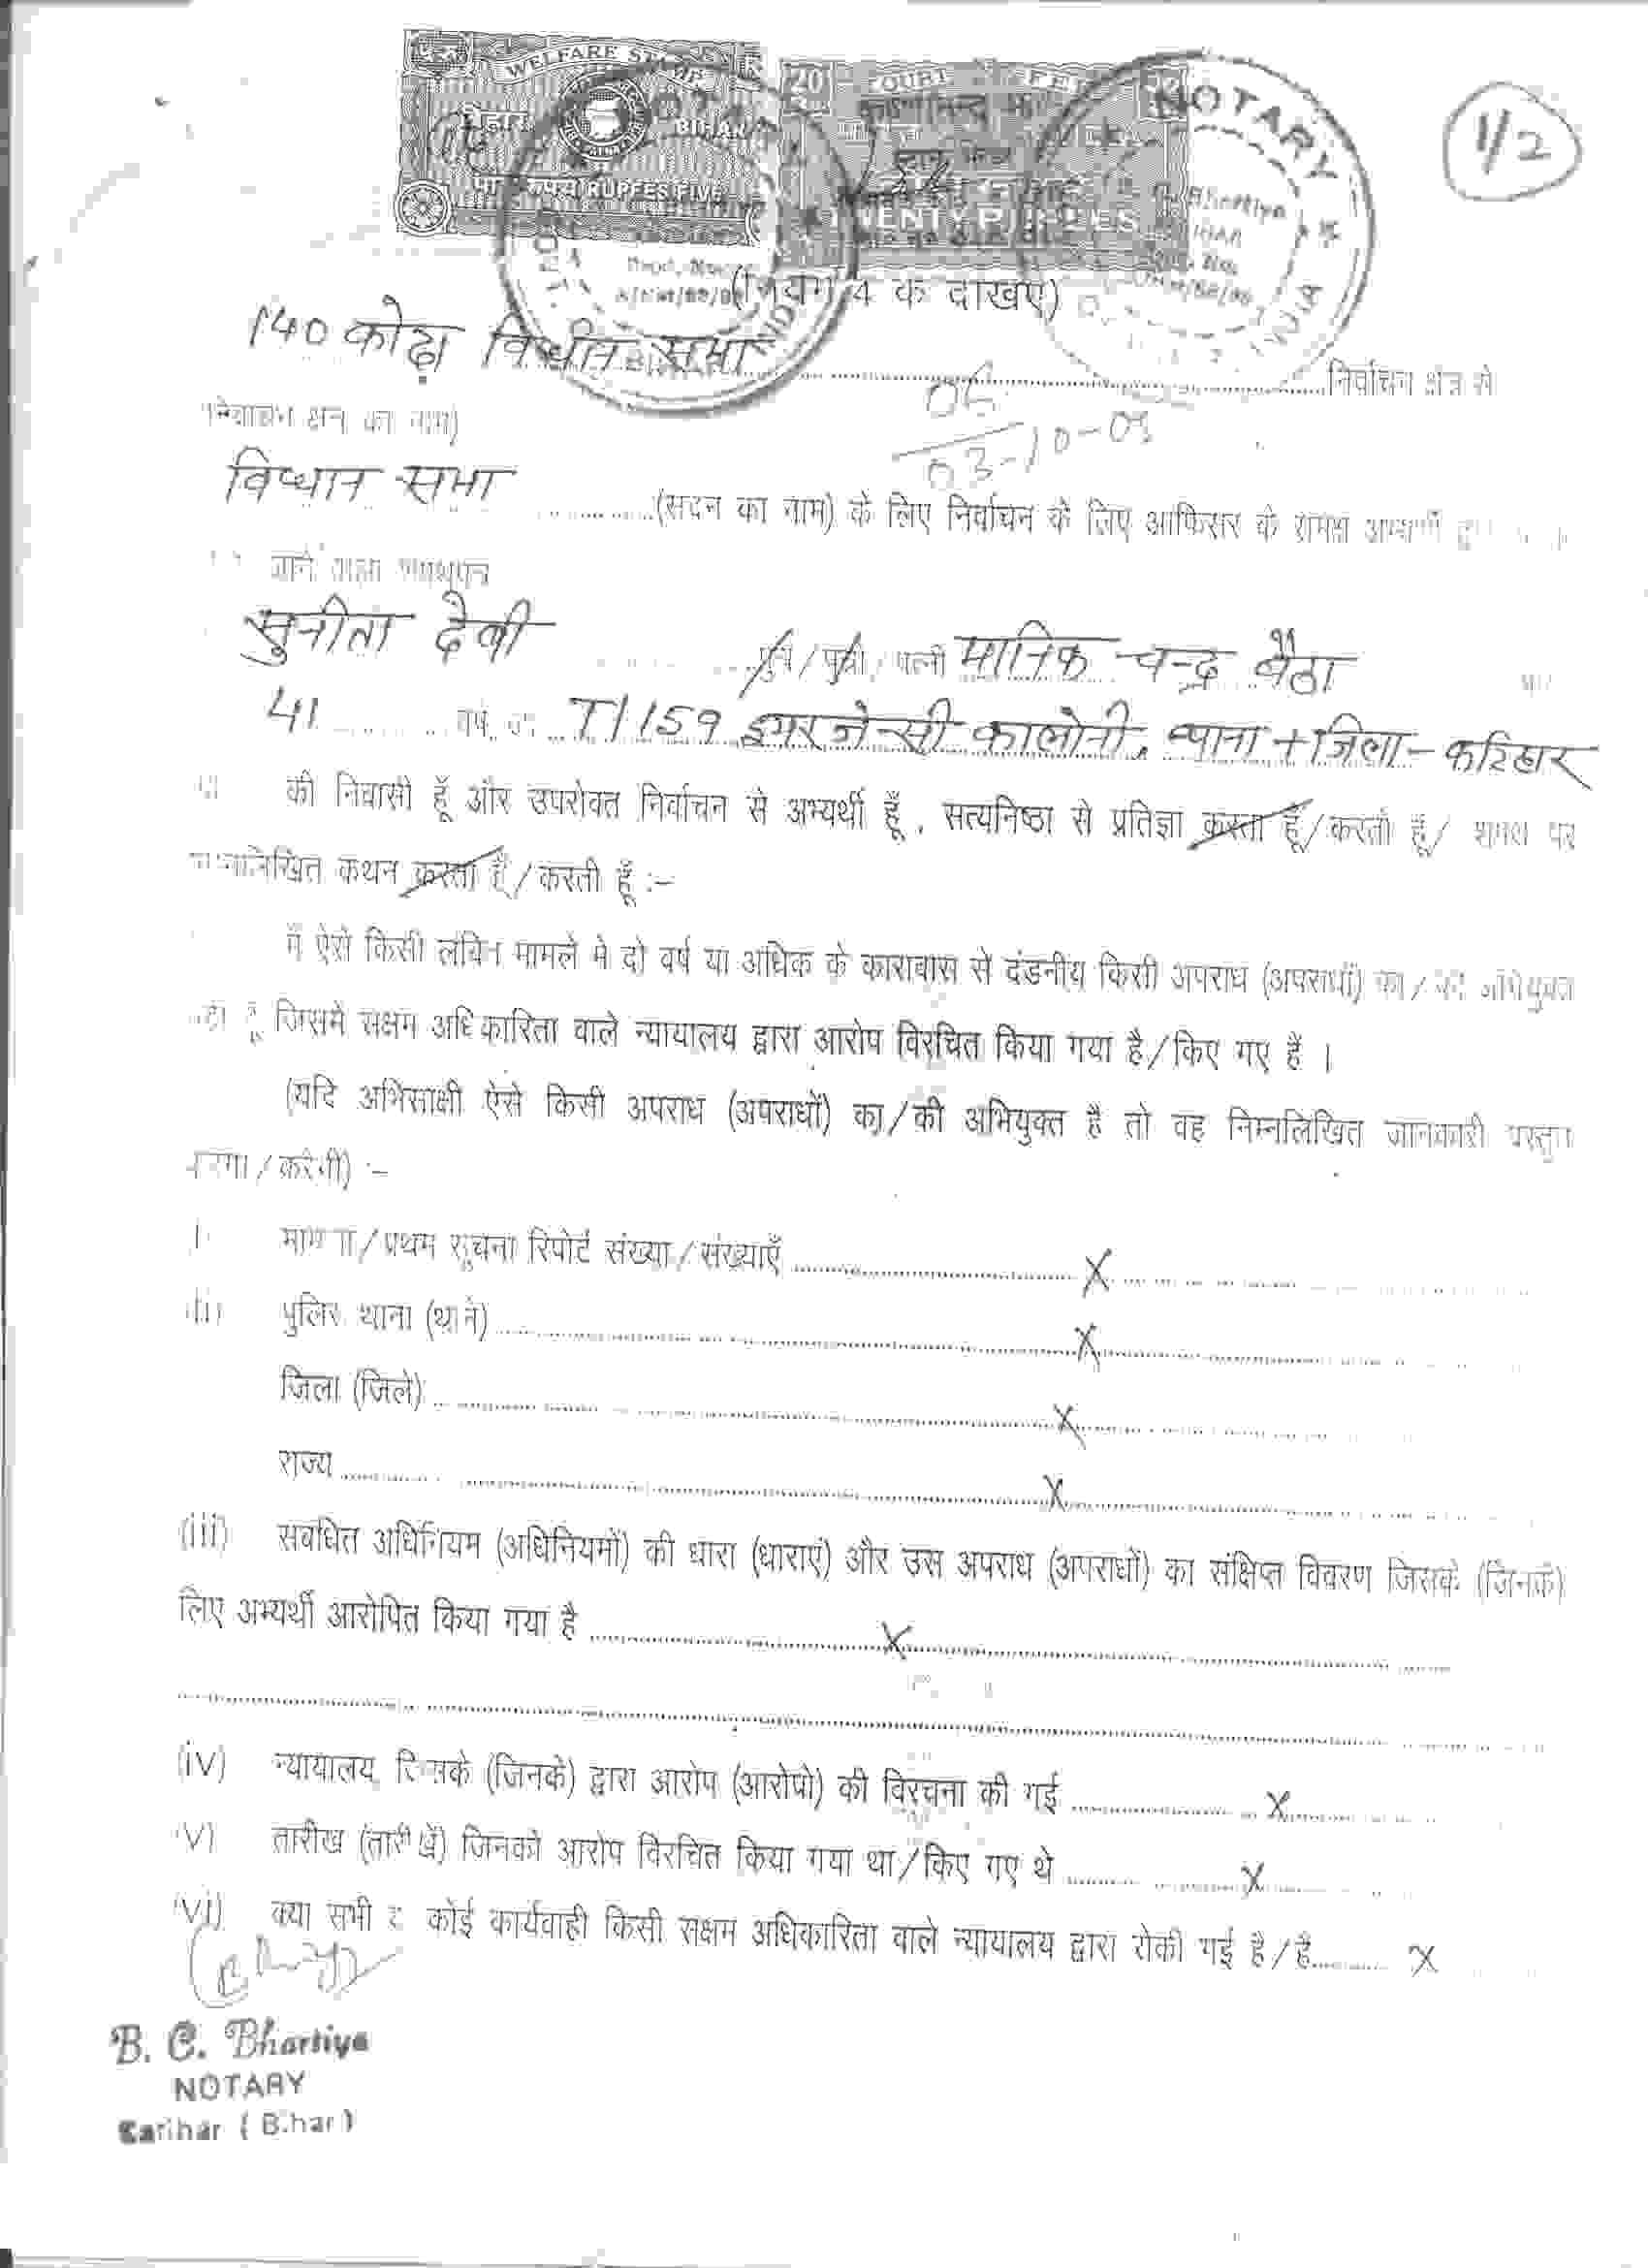 WELFARE STAMP
COURT FEE
20
बिहार BIHAR
RUPEES FIVE
TWENTY RUPEES
NOTARY
INDIA
1/2
140 कोढ़ा विधान सभा निर्वाचन क्षेत्र से
निर्वाचन क्षेत्र का नाम)
03-10-05
विधान सभा (सदन का नाम) के लिए निर्वाचन के लिए आफिसर के समक्ष अभ्यर्थी
जाने वाला शपथपत्र
सुनीता देवी पुत्र/पुत्री/पत्नी मानिक चन्द्र बैठा
41 वर्ष T/159 इमरजेन्सी कालोनी, थाना + जिला - कटिहार
की निवासी हूँ और उपरोक्त निर्वाचन से अभ्यर्थी हूँ, सत्यनिष्ठा से प्रतिज्ञा करता हूँ/करती हूँ/ शपथ पर
निम्नलिखित कथन करता हूँ/करती हूँ :–
मैं ऐसे किसी लंबित मामले मे दो वर्ष या अधिक के कारावास से दंडनीय किसी अपराध (अपराधों) का/की अभियुक्त
हूँ जिसमें सक्षम अधिकारिता वाले न्यायालय द्वारा आरोप विरचित किया गया है/किए गए हैं ।
(यदि अभिसाक्षी ऐसे किसी अपराध (अपराधों) का/की अभियुक्त है तो वह निम्नलिखित जानकारी प्रस्तुत
करेगा/करेगी) :–
मामला/प्रथम सूचना रिपोर्ट संख्या/संख्याएँ X
(ii) पुलिस थाना (थाने) X
जिला (जिले) X
राज्य X
(iii) संबंधित अधिनियम (अधिनियमों) की धारा (धाराएं) और उस अपराध (अपराधों) का संक्षिप्त विवरण जिसके (जिनके)
लिए अभ्यर्थी आरोपित किया गया है X
(iv) न्यायालय जिसके (जिनके) द्वारा आरोप (आरोपो) की विरचना की गई X
(v) तारीख (तारीखें) जिनको आरोप विरचित किया गया था/किए गए थे X
(vi) क्या सभी कोई कार्यवाही किसी सक्षम अधिकारिता वाले न्यायालय द्वारा रोकी गई है/हैं X
B. C. Bhartiya
NOTARY
Katihar (Bihar)